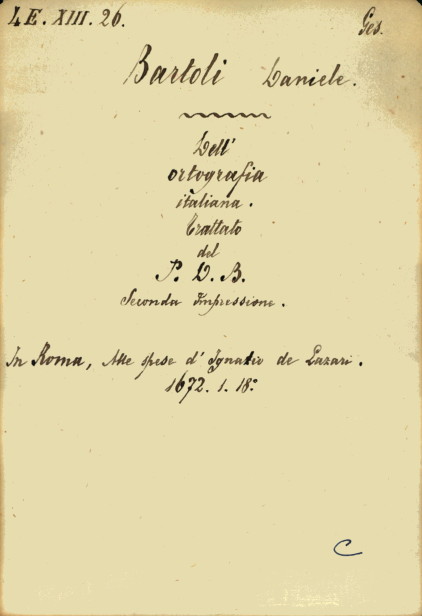 LE. XIII. 26. Ges.
Bartoli Daniele.
Dell'
ortografia
italiana.
Trattato
del
P. D. B.
Seconda Impressione.
In Roma, Alle spese d' Ignatio de Lazari.
1672. 1. 18:
C